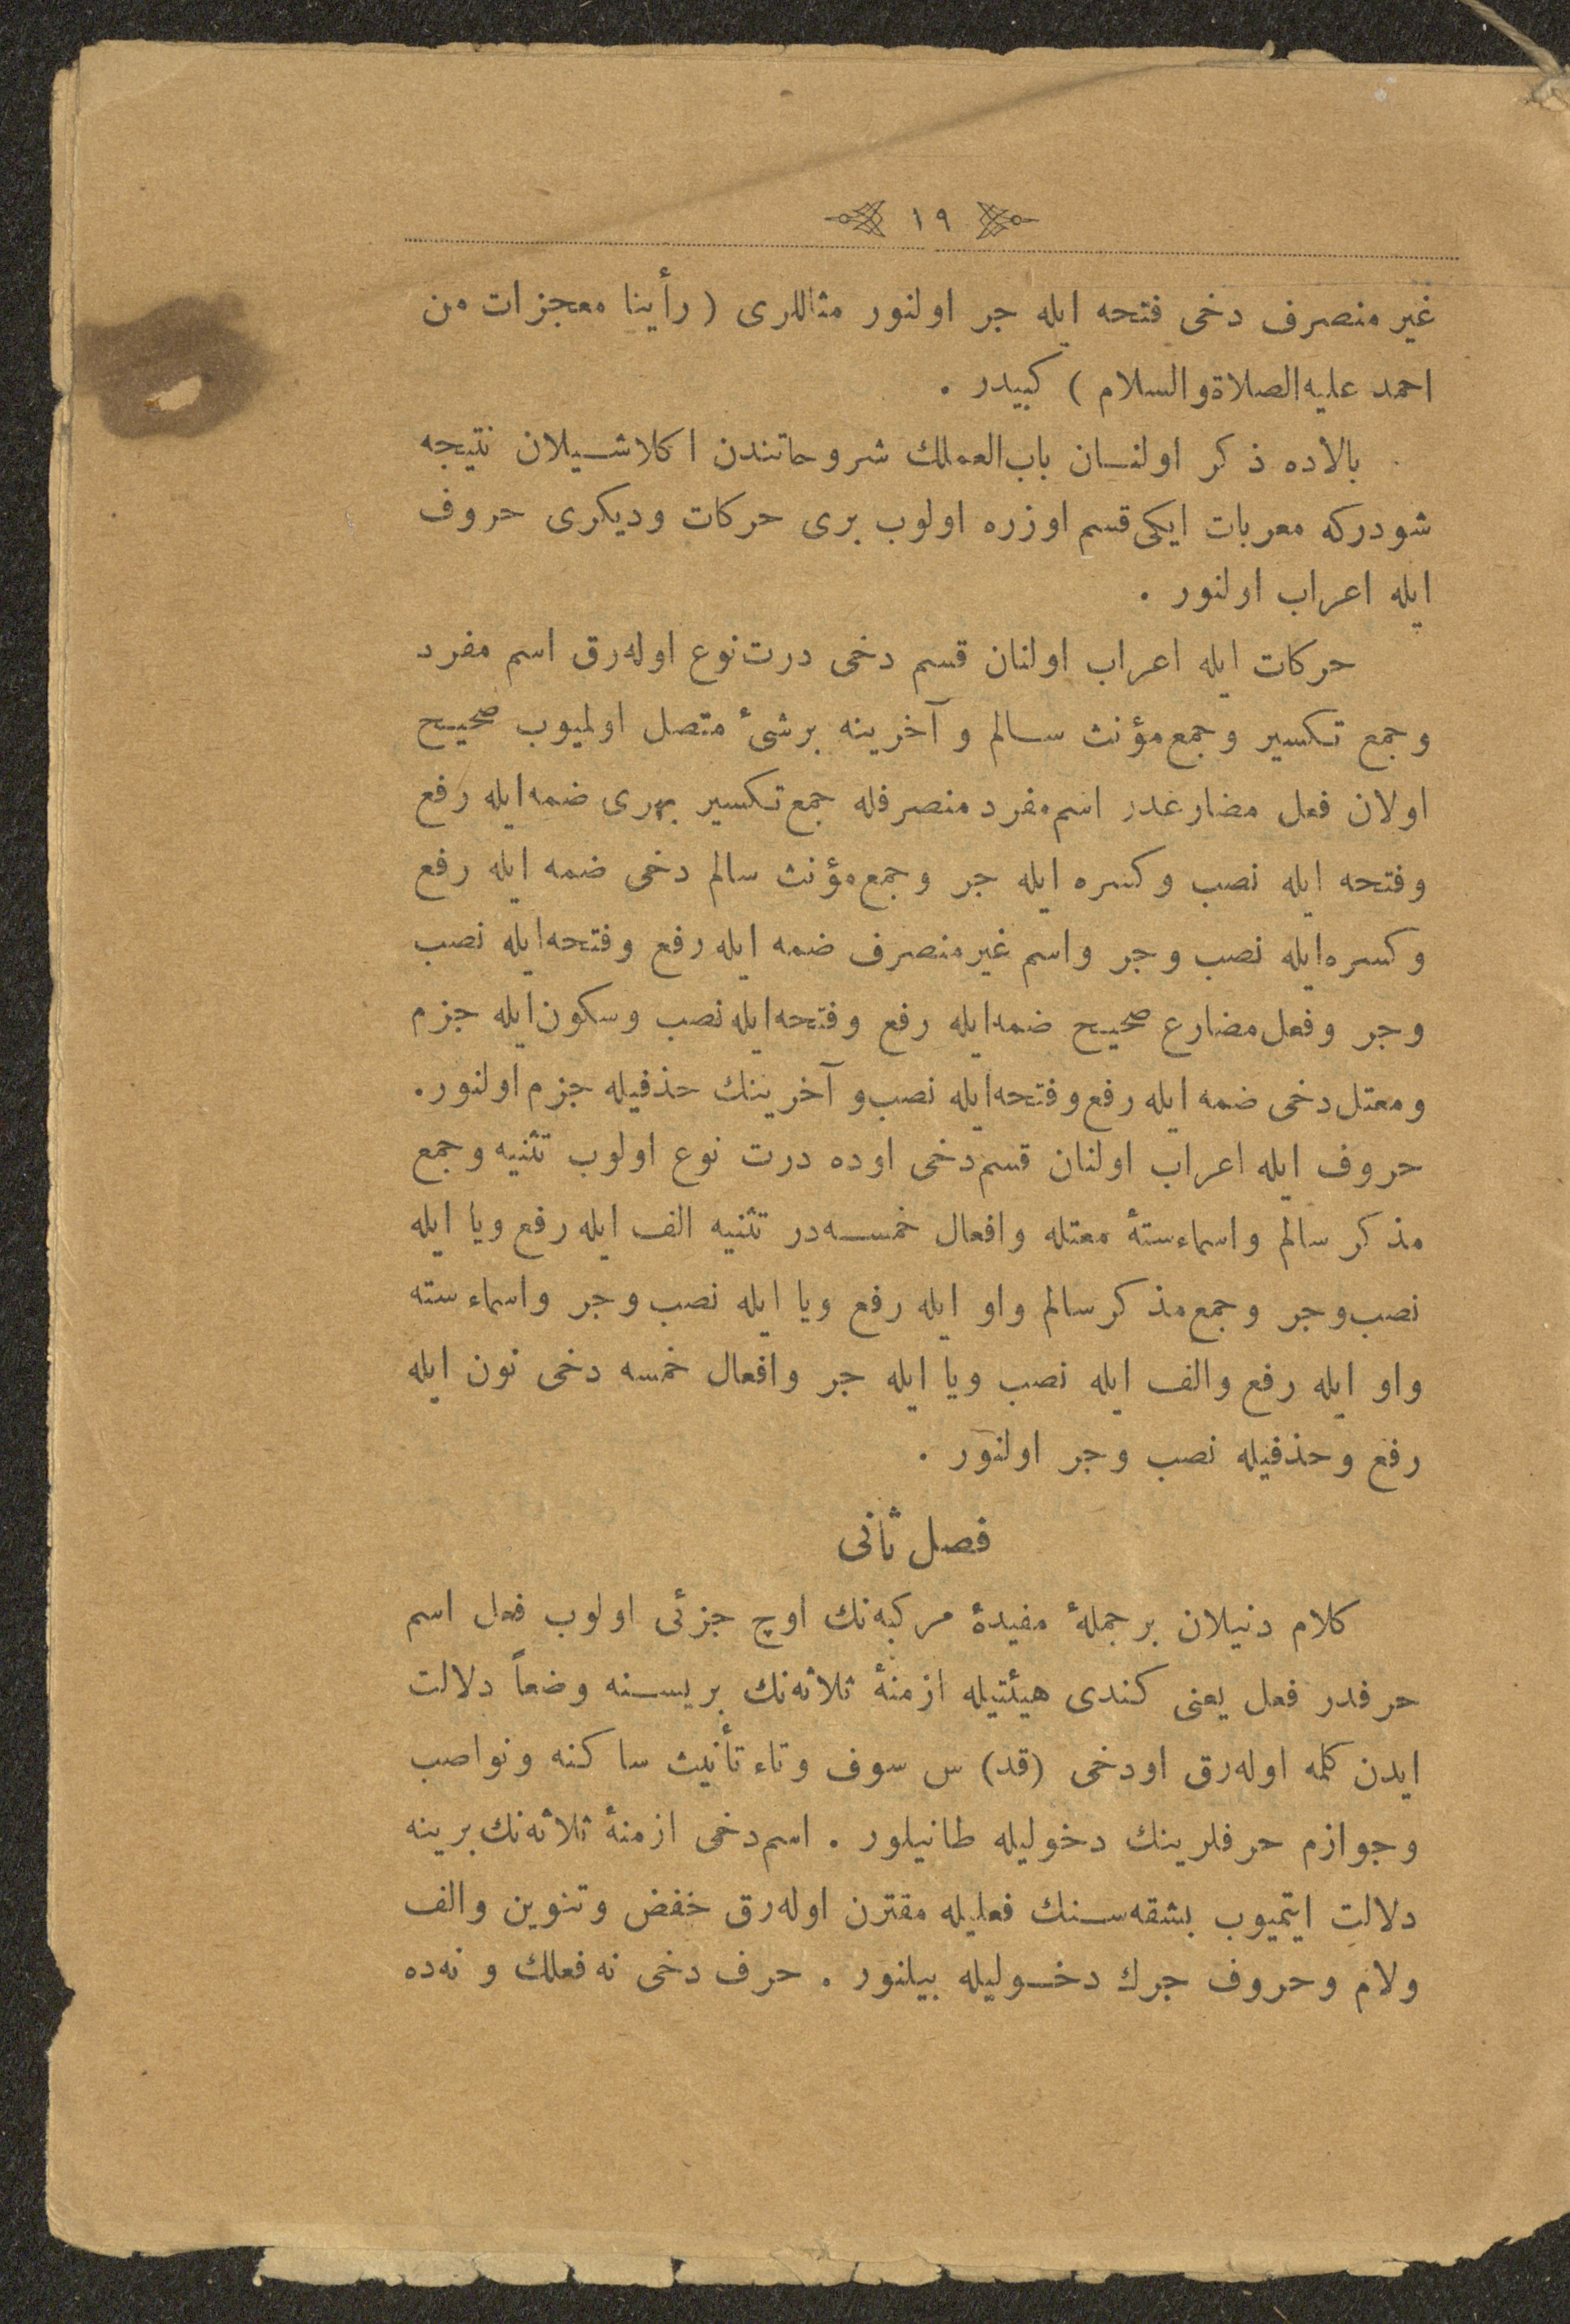 ١٩
غير منصرف دخى فتحه ايله جر اولنور مثاللرى (رأينا معجزات من
احمد عليه‌الصلاة‌والسلام) كبيدر .
بالاده ذكر اولنسان باب‌العمللك شروحاتندن اكلاشيلان نتيجه
شودركه معربات ايكى قسم اوزره اولوب برى حركات وديكرى حروف
ايله اعراب اولنور .
حركات ايله اعراب اولنان قسم دخى درت نوع اوله‌رق اسم مفرد
وجمع تكسير وجمع مؤنث سالم و آخرينه برشئ متصل اولميوب صحيح
اولان فعل مضارعدر اسم مفرد منصرفله جمع تكسير بهرى ضمه ايله رفع
وفتحه ايله نصب وكسره ايله جر وجمع مؤنث سالم دخى ضمه ايله رفع
وكسره ايله نصب وجر واسم غير منصرف ضمه ايله رفع وفتحه ايله نصب
وجر وفعل مضارع صحيح ضمه ايله رفع وفتحه ايله نصب وسكون ايله جزم
ومعتل دخى ضمه ايله رفع وفتحه ايله نصب و آخرينك حذفيله جزم اولنور.
حروف ايله اعراب اولنان قسم دخى اوده درت نوع اولوب تثنيه وجمع
مذكر سالم واسماء ستۀ معتله وافعال خمسه‌در تثنيه الف ايله رفع ويا ايله
نصب وجر وجمع مذكر سالم واو ايله رفع ويا ايله نصب وجر واسماء سته
واو ايله رفع والف ايله نصب ويا ايله جر وافعال خمسه دخى نون ايله
رفع وحذفيله نصب وجر اولنور .
فصل ثانى
كلام دنيلان برجملۀ مفيدۀ مركبه‌نك اوچ جزئى اولوب فعل اسم
حرفدر فعل يعنى كندى هيئتيله ازمنۀ ثلاثه‌نك بريسنه وضعاً دلالت
ايدن كلمه اوله‌رق اودخى (قد) س سوف وتاء تأنيث ساكنه ونواصب
وجوازم حرفلرينك دخوليله طانيلور . اسم دخى ازمنۀ ثلاثه‌نك برينه
دلالت ايتميوب بشقه‌سنك فعليله مقترن اوله‌رق خفض وتنوين والف
ولام وحروف جرك دخوليله بيلنور . حرف دخى نه فعللك و نه‌ده